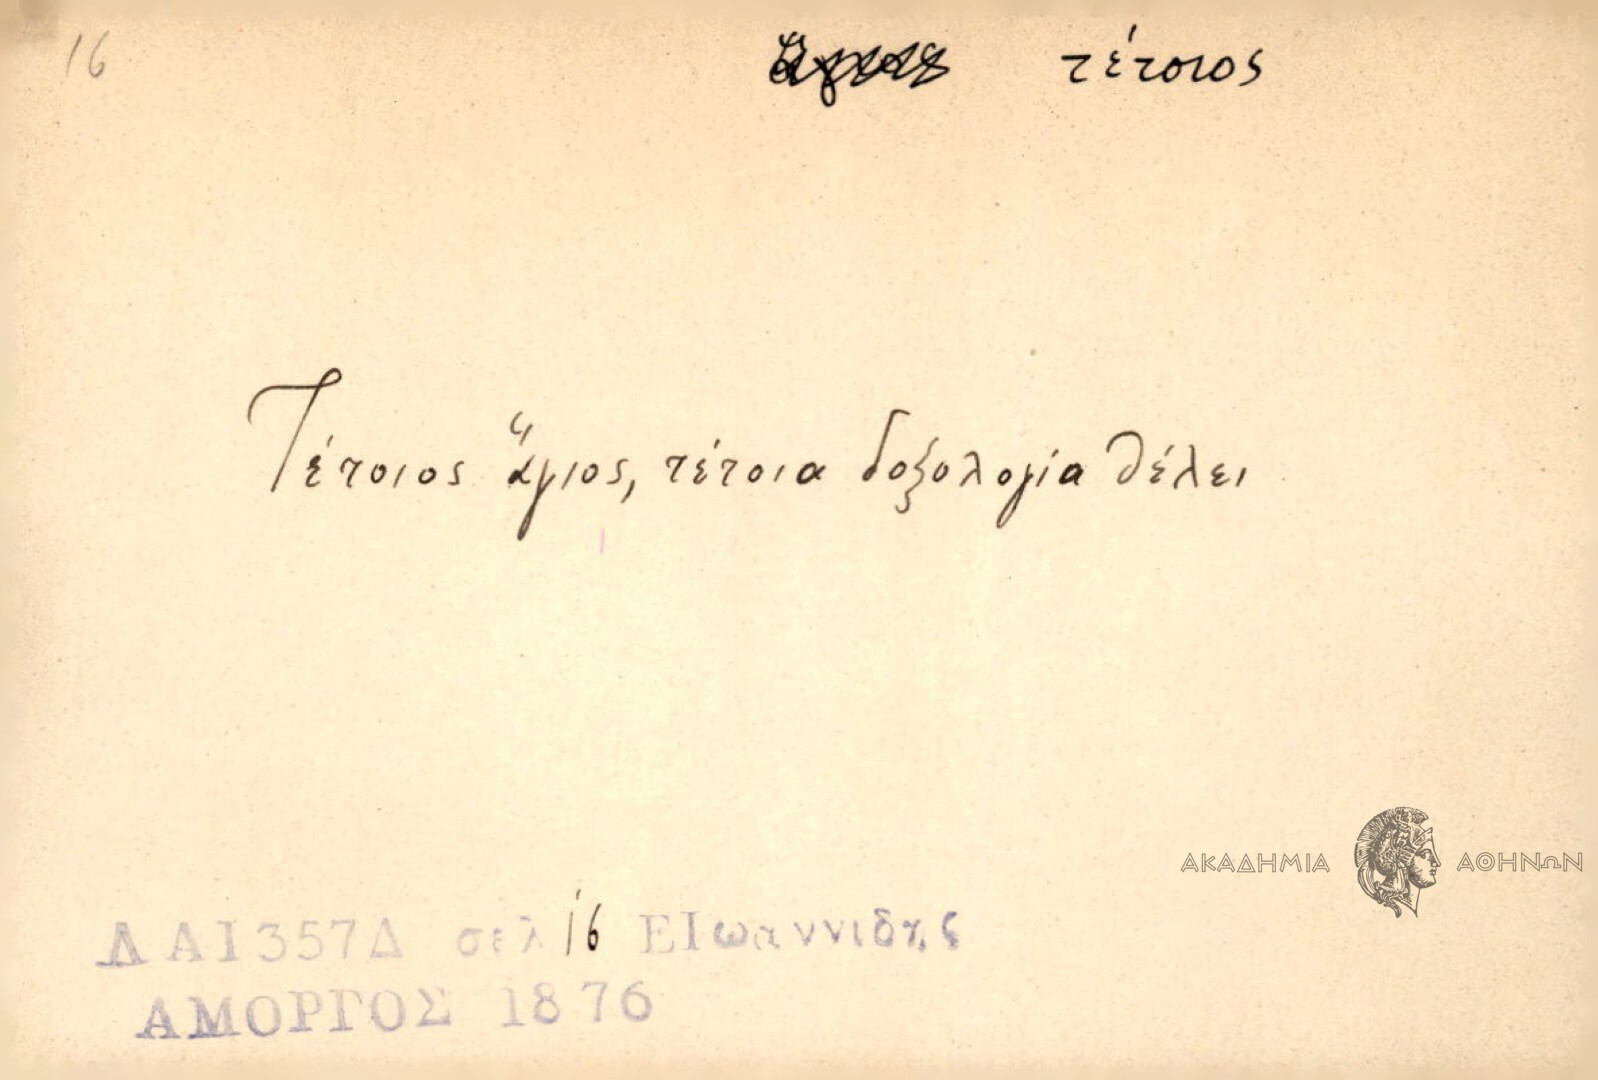 16 τέτοιος
Τέτοιος ἅγιος, τέτοια δοξολογία θέλει
ΑΚΑΔΗΜΙΑ ΑΘΗΝΩΝ
ΔΑΙ357Δ σελ 16 ΕΙωαννιδης
ΑΜΟΡΓΟΣ 1876